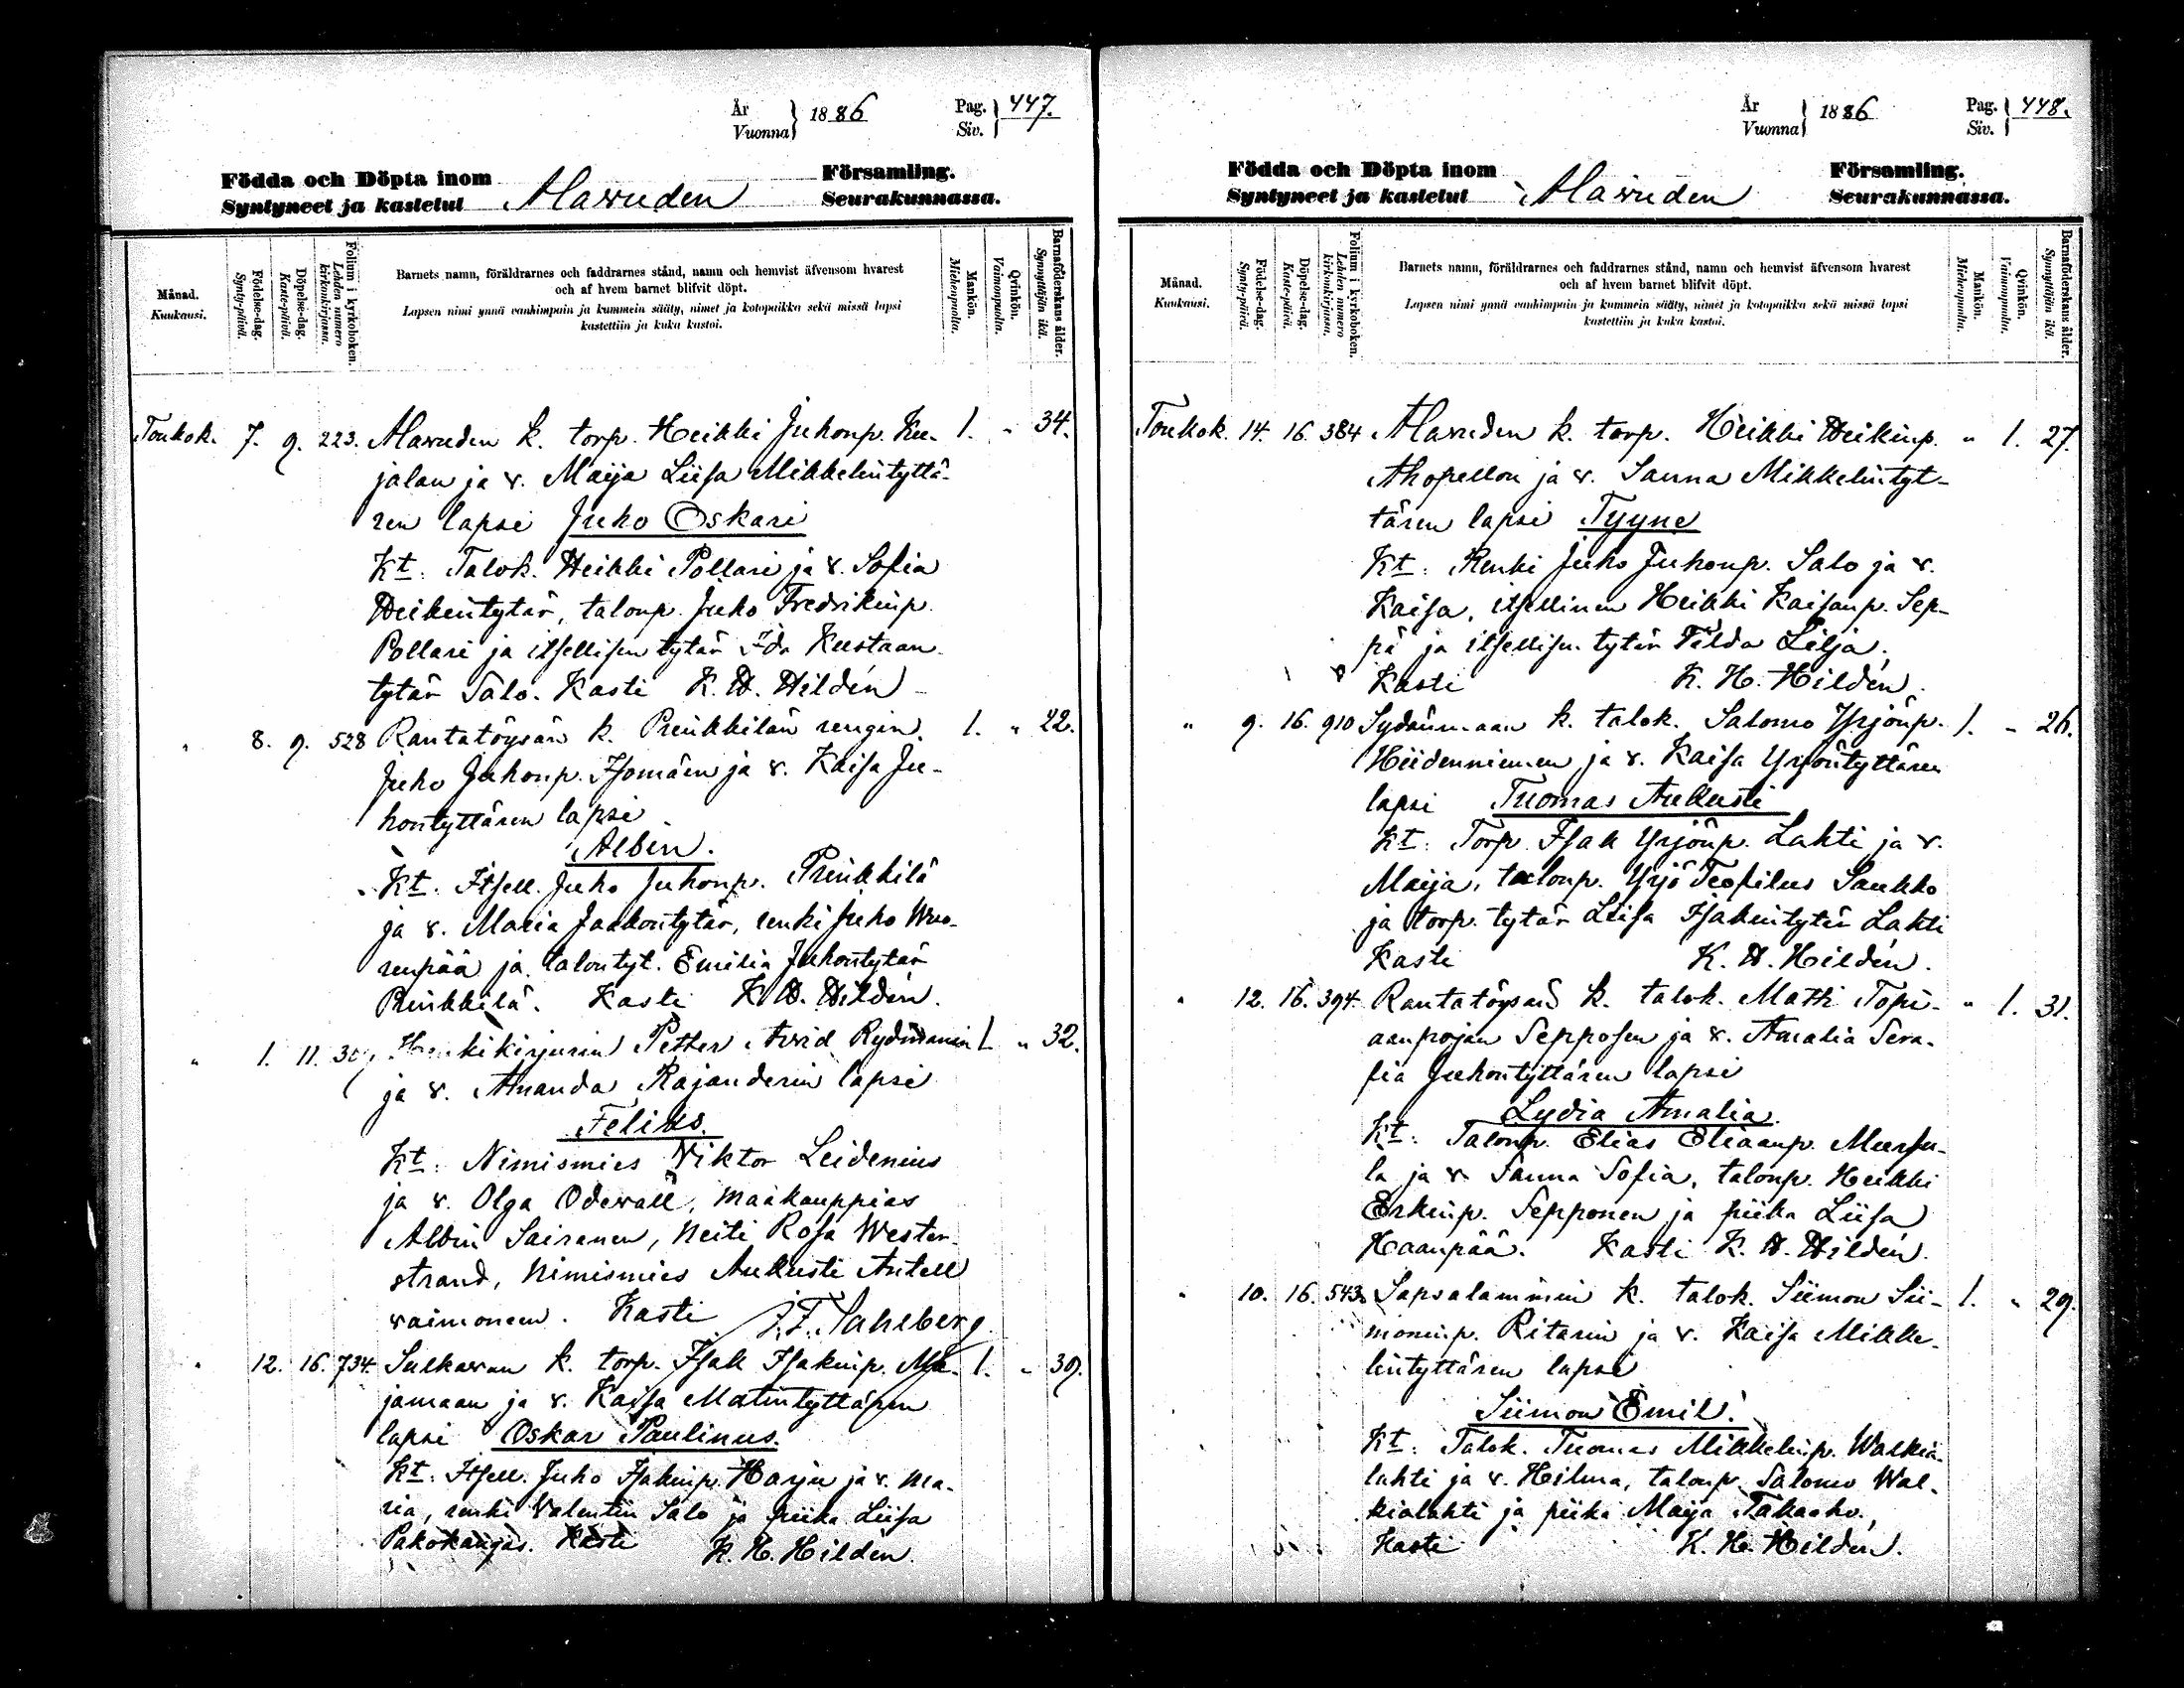 År
Vuonna } 1886 Pag.
Siv. } 447.
Födda och Döpta inom
Syntyneet ja kastetut Alavuden Församling.
Seurakunnassa.
Månad.
Kuukausi.
Födelse-dag.
Synty-päivä.
Döpelse-dag.
Kaste-päivä.
Folium i kyrkoboken.
Lehden numero kirkonkirjassa.
Barnets namn, föräldrarnes och faddrarnes stånd, namn och hemvist äfvensom hvarest
och af hvem barnet blifvit döpt.
Lapsen nimi ynnä vanhimpain ja kummein sääty, nimet ja kotopaikka sekä missä lapsi
kastettiin ja kuka kastoi.
Mankön.
Miehenpuolta.
Qvinkön.
Vaimonpuolta.
Barnaföderskans ålder.
Synnyttäjän ikä.
Toukok. 7. 9. 223. Alavuden k. torp. Heikki Juhonp. Ku- 1. " 34.
jalan ja v. Maija Liisa Mikkelintyttä-
ren lapsi Juho Oskari
Kt: Talok. Heikki Pollari ja v. Sofia
Heikintytär, talonp. Juho Fredrikinp.
Pollari ja itsellisen tytär Ida Kustaan
tytär Salo. Kasti K. H. Hildén
" 8. 9. 528 Rantatöysän k. Prinkkilän rengin 1. " 22.
Juho Juhonp. Isomäen ja v. Kaisa Ju-
hontyttären lapsi
Albin.
Kt. Itsell. Juho Juhonp. Prinkkilä
ja v. Maria Jaakontytär, renki Juho Wuo-
renpää ja talontyt. Emilia Juhontytär
Prinkkilä. Kasti K. H. Hildén.
" 1. 11. Henkikirjurin Petter Arvid Rydmanin 1. " 32.
ja v. Amanda Rajanderin lapsi
Feliks.
Kt: Nimismies Viktor Leidenius
ja v. Olga Odewall, maakauppias
Albin Sairanen, neiti Rosa Wester-
strand, Nimismies Aukusti Antell
vaimoneen. Kasti J. F. Sahlberg.
" 12. 16. 734. Sulkavan k. torp. Isak Isakinp. Ma- 1. " 39.
jamaan ja v. Kaisa Matintyttären
lapsi Oskar Paulinus.
Kt: Itsell. Juho Isakinp. Harju ja v. Ma-
ria, renki Valentin Salo ja piika Liisa
Pakokangas. Kasti K. H. Hildén.
År
Vuonna } 1886 Pag.
Siv. } 448.
Födda och Döpta inom
Syntyneet ja kastetut Alavuden Församling.
Seurakunnassa.
Månad.
Kuukausi.
Födelse-dag.
Synty-päivä.
Döpelse-dag.
Kaste-päivä.
Folium i kyrkoboken.
Lehden numero kirkonkirjassa.
Barnets namn, föräldrarnes och faddrarnes stånd, namn och hemvist äfvensom hvarest
och af hvem barnet blifvit döpt.
Lapsen nimi ynnä vanhimpain ja kummein sääty, nimet ja kotopaikka sekä missä lapsi
kastettiin ja kuka kastoi.
Mankön.
Miehenpuolta.
Qvinkön.
Vaimonpuolta.
Barnaföderskans ålder.
Synnyttäjän ikä.
Toukok. 14. 16. 384 Alavuden k. torp. Heikki Heikinp. " 1. 27.
Ahopellon ja v. Sanna Mikkelintyt-
tären lapsi Tyyne
Kt: Renki Juho Juhonp. Salo ja v.
Kaisa, itsellinen Heikki Kaisanp. Sep-
pä ja itsellisen tytär Tilda Lilja.
Kasti K. H. Hildén.
" 9. 16. 910 Sydänmaan k. talok. Salomo Yrjönp. 1. " 26.
Hiidenniemen ja v. Kaisa Yrjöntyttären
lapsi Tuomas Aukusti
Kt: Torp. Isak Yrjönp. Lahti ja v.
Maija, talonp. Yrjö Teofilus Saukko
ja torp. tytär Liisa Isakintytär Lahti
Kasti K. H. Hildén.
" 12. 16. 394. Rantatöysän k. talok. Matti Topi- " 1. 31.
aanpojan Sepposen ja v. Amalia Sera-
fia Juhontyttären lapsi
Lydia Amalia.
Kt: Talonp. Elias Eliaanp. Mursu-
la ja v. Sanna Sofia, talonp. Heikki
Erkinp. Sepponen ja piika Liisa
Haanpää. Kasti K. H. Hildén.
" 10. 16. 543. Sapsalammin k. talok. Siimon Sii- 1. " 29.
moninp. Ritarin ja v. Kaisa Mikke-
lintyttären lapsi
Siimon Emil.
Kt: Talok. Tuomas Mikkelinp. Walkia-
lahti ja v. Hilma, talonp. Salomo Wal-
kialahti ja piika Maija Takaaho.
Kasti K. H. Hildén.